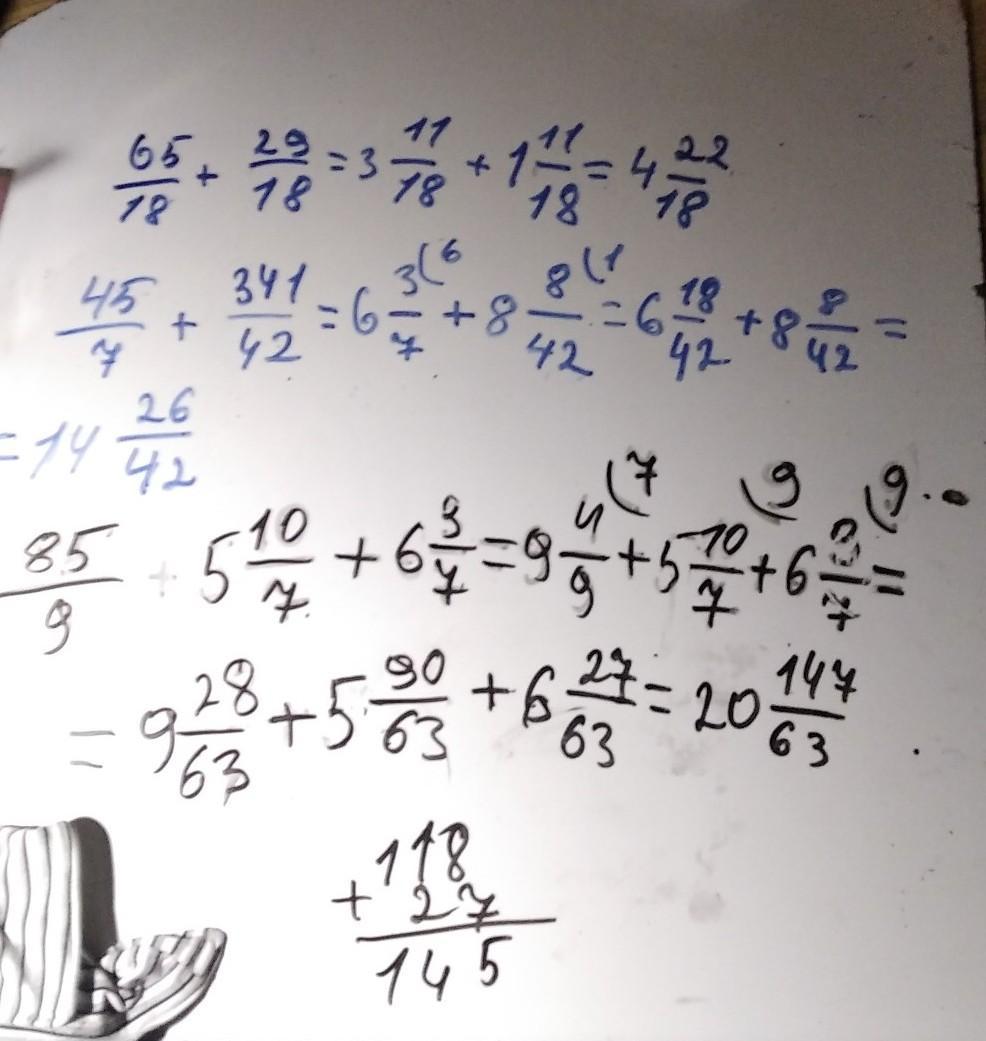 65/18 + 29/18 = 3 11/18 + 1 11/18 = 4 22/18
45/7 + 341/42 = 6 3/7 (6 + 8 8/42 (1 = 6 18/42 + 8 8/42 =
= 14 26/42
85/9 + 5 10/7 + 6 3/7 = 9 4/9 (7 + 5 10/7 (9 + 6 3/7 (9 =
= 9 28/63 + 5 90/63 + 6 27/63 = 20 147/63
118
+ 27
145